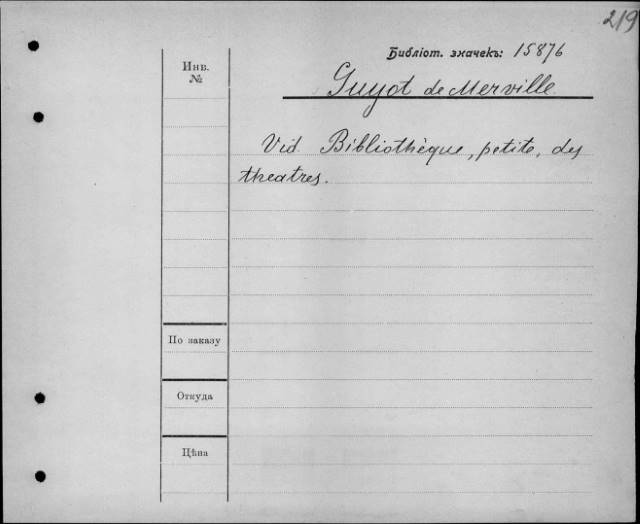 219
Библіот. значекъ: 15876
Инв.
№
Guyot de Merville
Vid. Bibliothèque, petite, des
theatres.
По заказу
Откуда
Цѣна